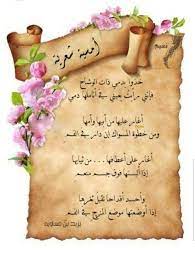 نسيم
أمسية شعرية
خذوا بدمي ذات الوشاح
فإنني رأيت بعيني في أناملها دمي
أغار عليها من أبيها وأمها
ومن خطوة المسواك إن دار في الفم
أغار على أعطافها ... من ثيابها
إذا ألبستها فوق جسم منعم
وأحسد أقداحا تقبل ثغرها
إذا أوضعتها موضع المزج في الفم
يزيد بن معاوية